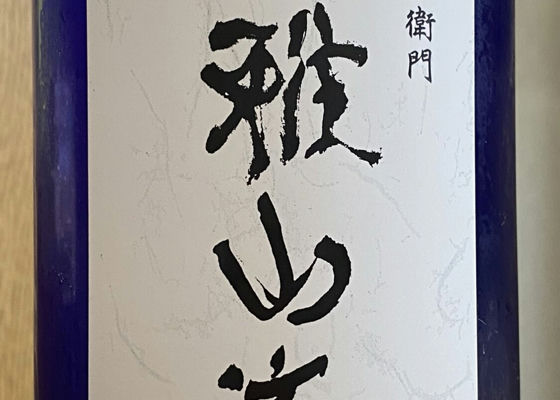 衛門
雅山